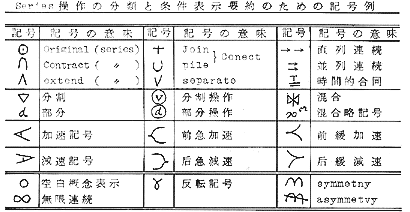 Series操作の分類と条件表示要約のための記号例
記号 記号の意味 記号 記号の意味 記号 記号の意味
⊙ Original (series) + Join →→ 直列連続
∩ Contract ( 〃 ) ∪ pile } Conect ⇉ 並列連続
∧ extend ( 〃 ) ∨ separato 時間的合同
▽ 分割 ⓥ 分割操作 混合
α 部分 ⓐ 部分操作 混合略記号
< 加速記号 前急加速 前緩加速
A 減速記号 后急減速 后緩減速
○ 空白概念表示 γ 反転記号 symmetny
∞ 無限連続 asymmetvy